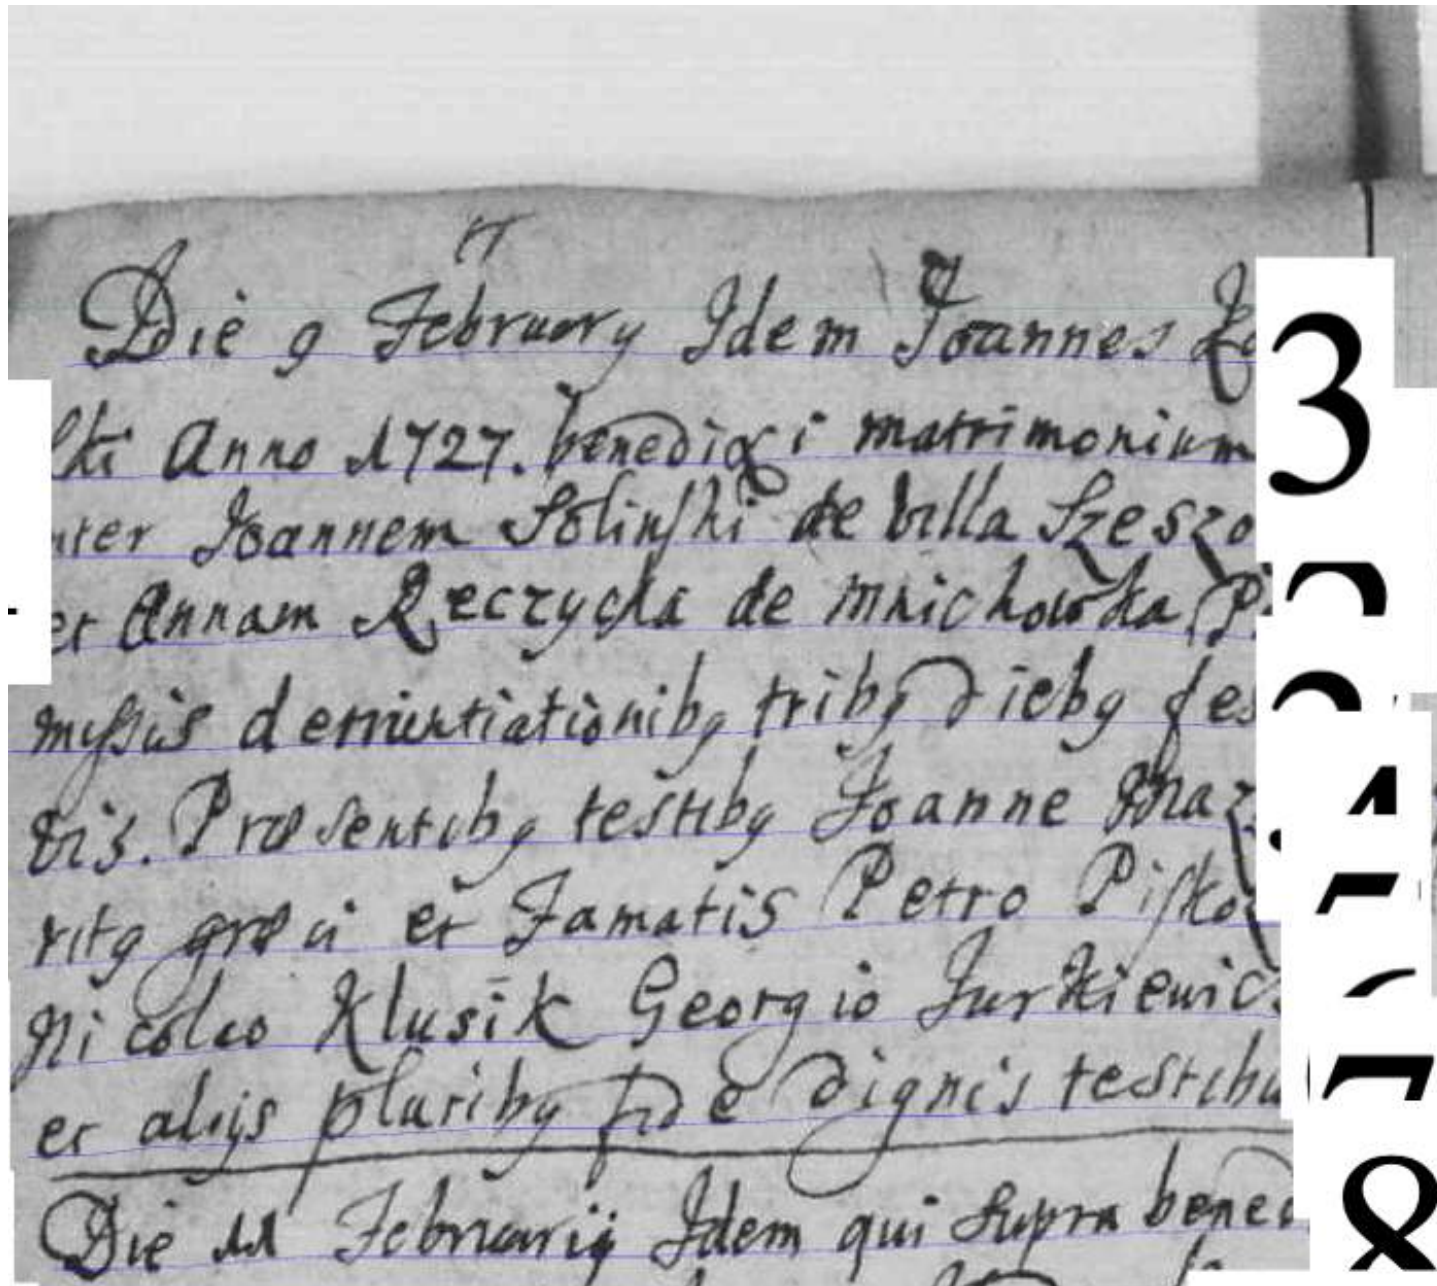 Die 9 February Idem Joannes
ski Anno 1727. benedixi matrimonium
inter Joannem Solinski de villa Szeszo
et Annam Rzeczycka de Mnichowska
myssis denuntiationibg tribg diebg fes
vis. Præsentibg testibg Joanne
ritg græci et Famatis Petro Pisko
Nicolao Klusik Georgio Jurkiewic
et alijs pluribg fide dignis testibu
Die 11 Februarij Idem qui supra bened
3
8